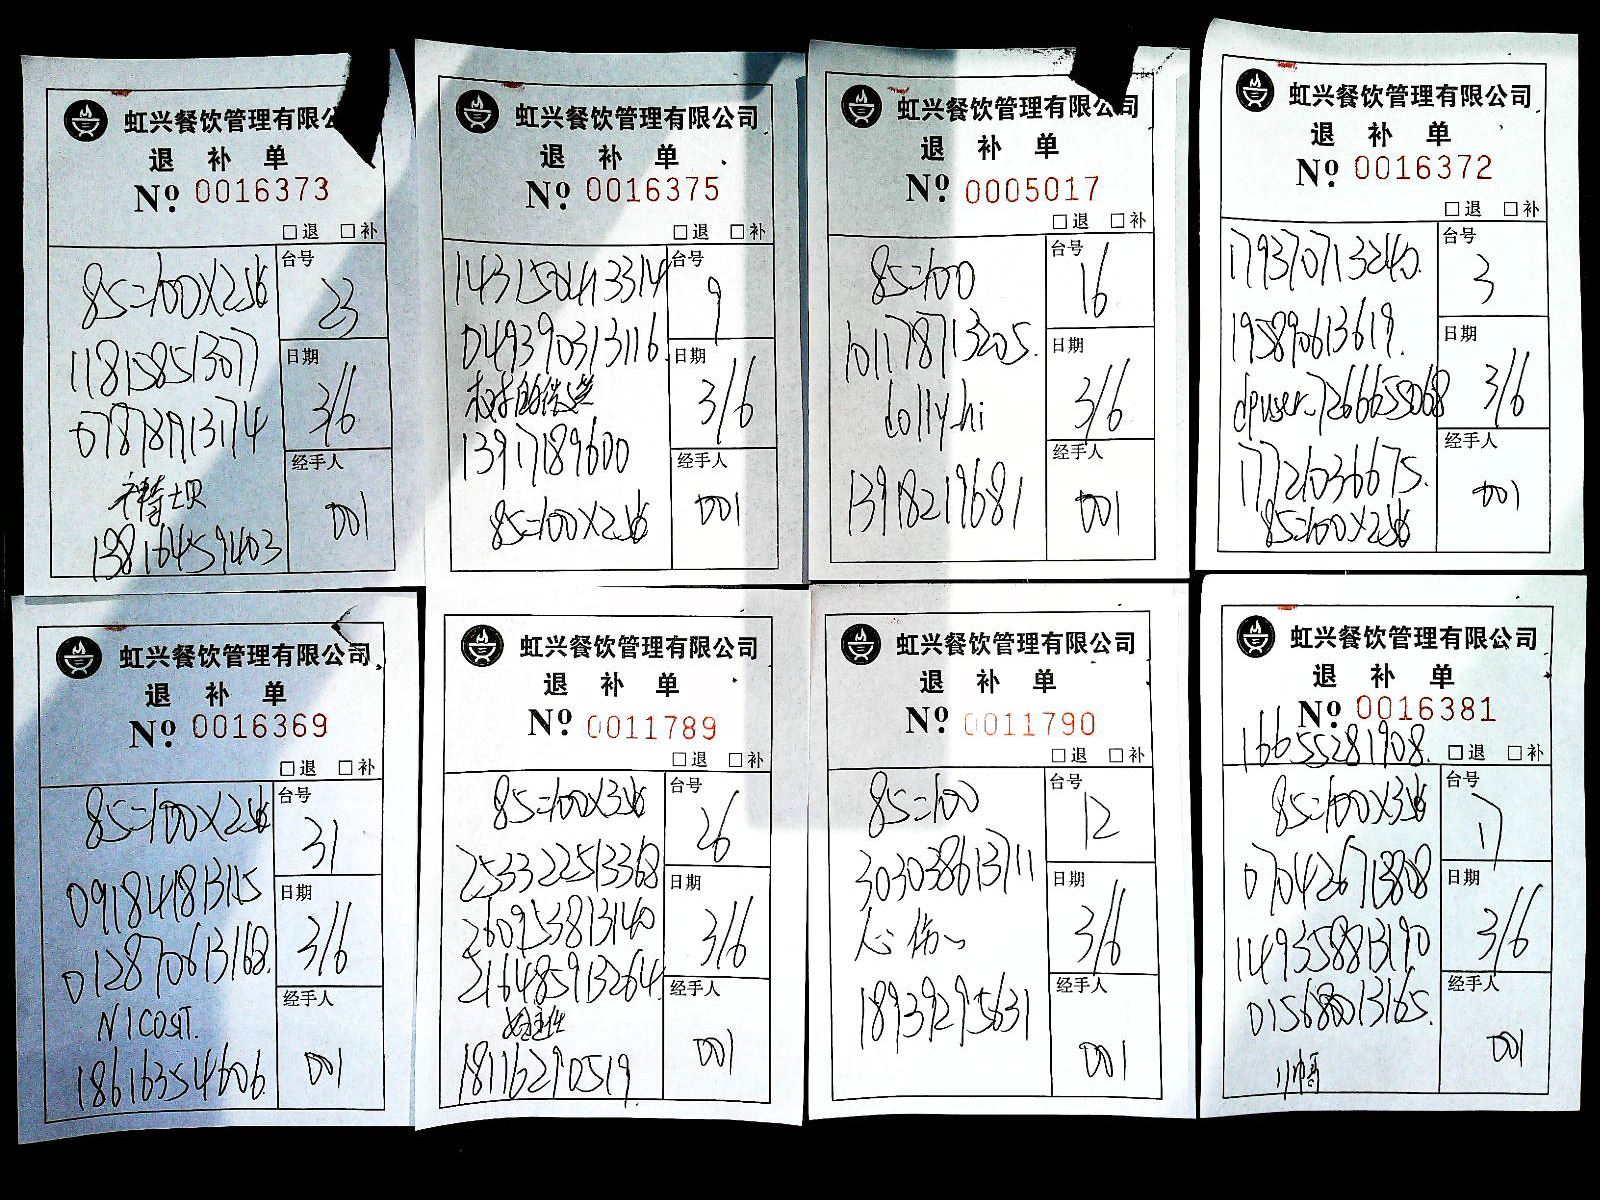 虹兴餐饮管理有限公
退 补 单
Nº. 0016373
□退 □补
85=100×2张
台号
23
118158513077
日期
3/6
078789913174
经手人
001
13816459403
虹兴餐饮管理有限公司
退 补 单
Nº. 0016375
□退 □补
143150413314
台号
9
049390313116
日期
3/6
13917189600
经手人
001
85=100×2张
虹兴餐饮管理有限公司
退 补 单
Nº. 0005017
□退 □补
85=100
台号
16
101178713205.
日期
3/6
dolly-hi
经手人
001
13918219681
虹兴餐饮管理有限公司
退 补 单
Nº. 0016372
□退 □补
179370713240.
台号
3
195890613619.
日期
3/6
dpuser-7266655068
经手人
001
17721036675.
85=100×2张
虹兴餐饮管理有限公司
退 补 单
Nº. 0016369
□退 □补
85=100×2张
台号
31
091841813115
日期
3/6
012870613168.
NICOSIT.
经手人
001
18616354606.
虹兴餐饮管理有限公司
退 补 单
Nº. 0011789
□退 □补
85=100×3张
台号
26
253322513368
日期
3/6
260953813140
216485913264.
经手人
001
18116290519.
虹兴餐饮管理有限公司
退 补 单
Nº. 0011790
□退 □补
85=100
台号
12
303038613711
日期
3/6
心伤~
经手人
001
18939295631
虹兴餐饮管理有限公司
退 补 单
Nº. 0016381
16655281908.
□退 □补
85=100×3张
台号
17
070426713808
日期
3/6
149355881 3190
015680013165.
经手人
001
小帅哥